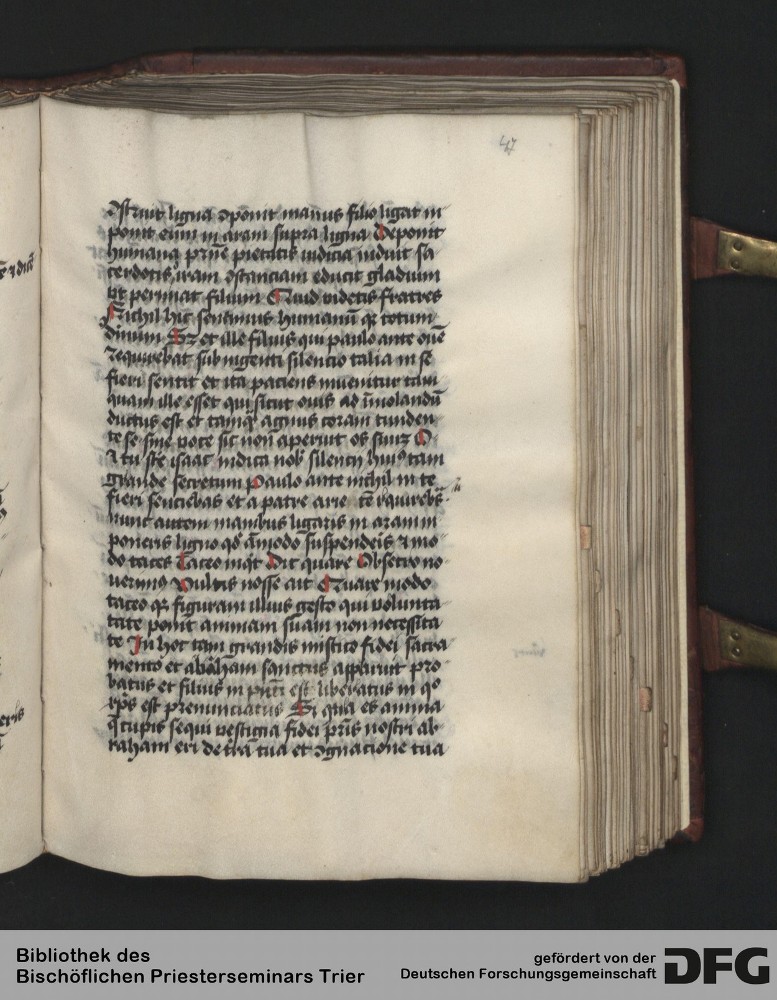 47
ɔstruit ligna ɔponit manus filio ligat in
ponit eum in aram supra ligna Deponit
humanā pr̄ne pietatis iudicia induit sa
cerdotis iram ɔstanciam educit gladium
ut perimat filium Quid videtis fratres
Nichil hic sentimus humanū qꝛ totum
diuinum Sꝫ et ille filius qui paulo ante ouē
requirebat sub nigenti silencio talia in se
fieri sentit et ita paciens inuenitur tam
quam ille esset qui sicut ouis ad īmolandū
ductus est et tamqᷓ agnus coram tunden
te se sine voce sic non aperuit os suuꝫ O
tu ste isaac indica nob̄ silencii huiꝰ tam
grande secretum Paulo ante nichil in te
fieri senciebas et a patre arietē requirebas
nunc autem manibus ligaris in aram in
poneris ligno qd̄ āmodo suspenderis ⁊ mo
do taces Taceo inqͥt Dic quare Obsecro no
uerimꝰ Vultis nosse ait Quare modo
taceo qꝛ figuram illius gesto qui volunta
tate ponit animam suam non necessita
te In hoc tam grandis mistico fidei sacra
mento et abrāham sanctus apparuit pro
batus et filius in pn̄ti est liberatus in qͦ
xp̄s est prenunciatus Si qua es anima
q̄ cupis sequi vestigia fidei pr̄is nostri ab
raham exi de tr̄a tua et ɔgnacione tua
eris
Bibliothek des
Bischöflichen Priesterseminars Trier
gefördert von der
Deutschen Forschungsgemeinschaft
DFG